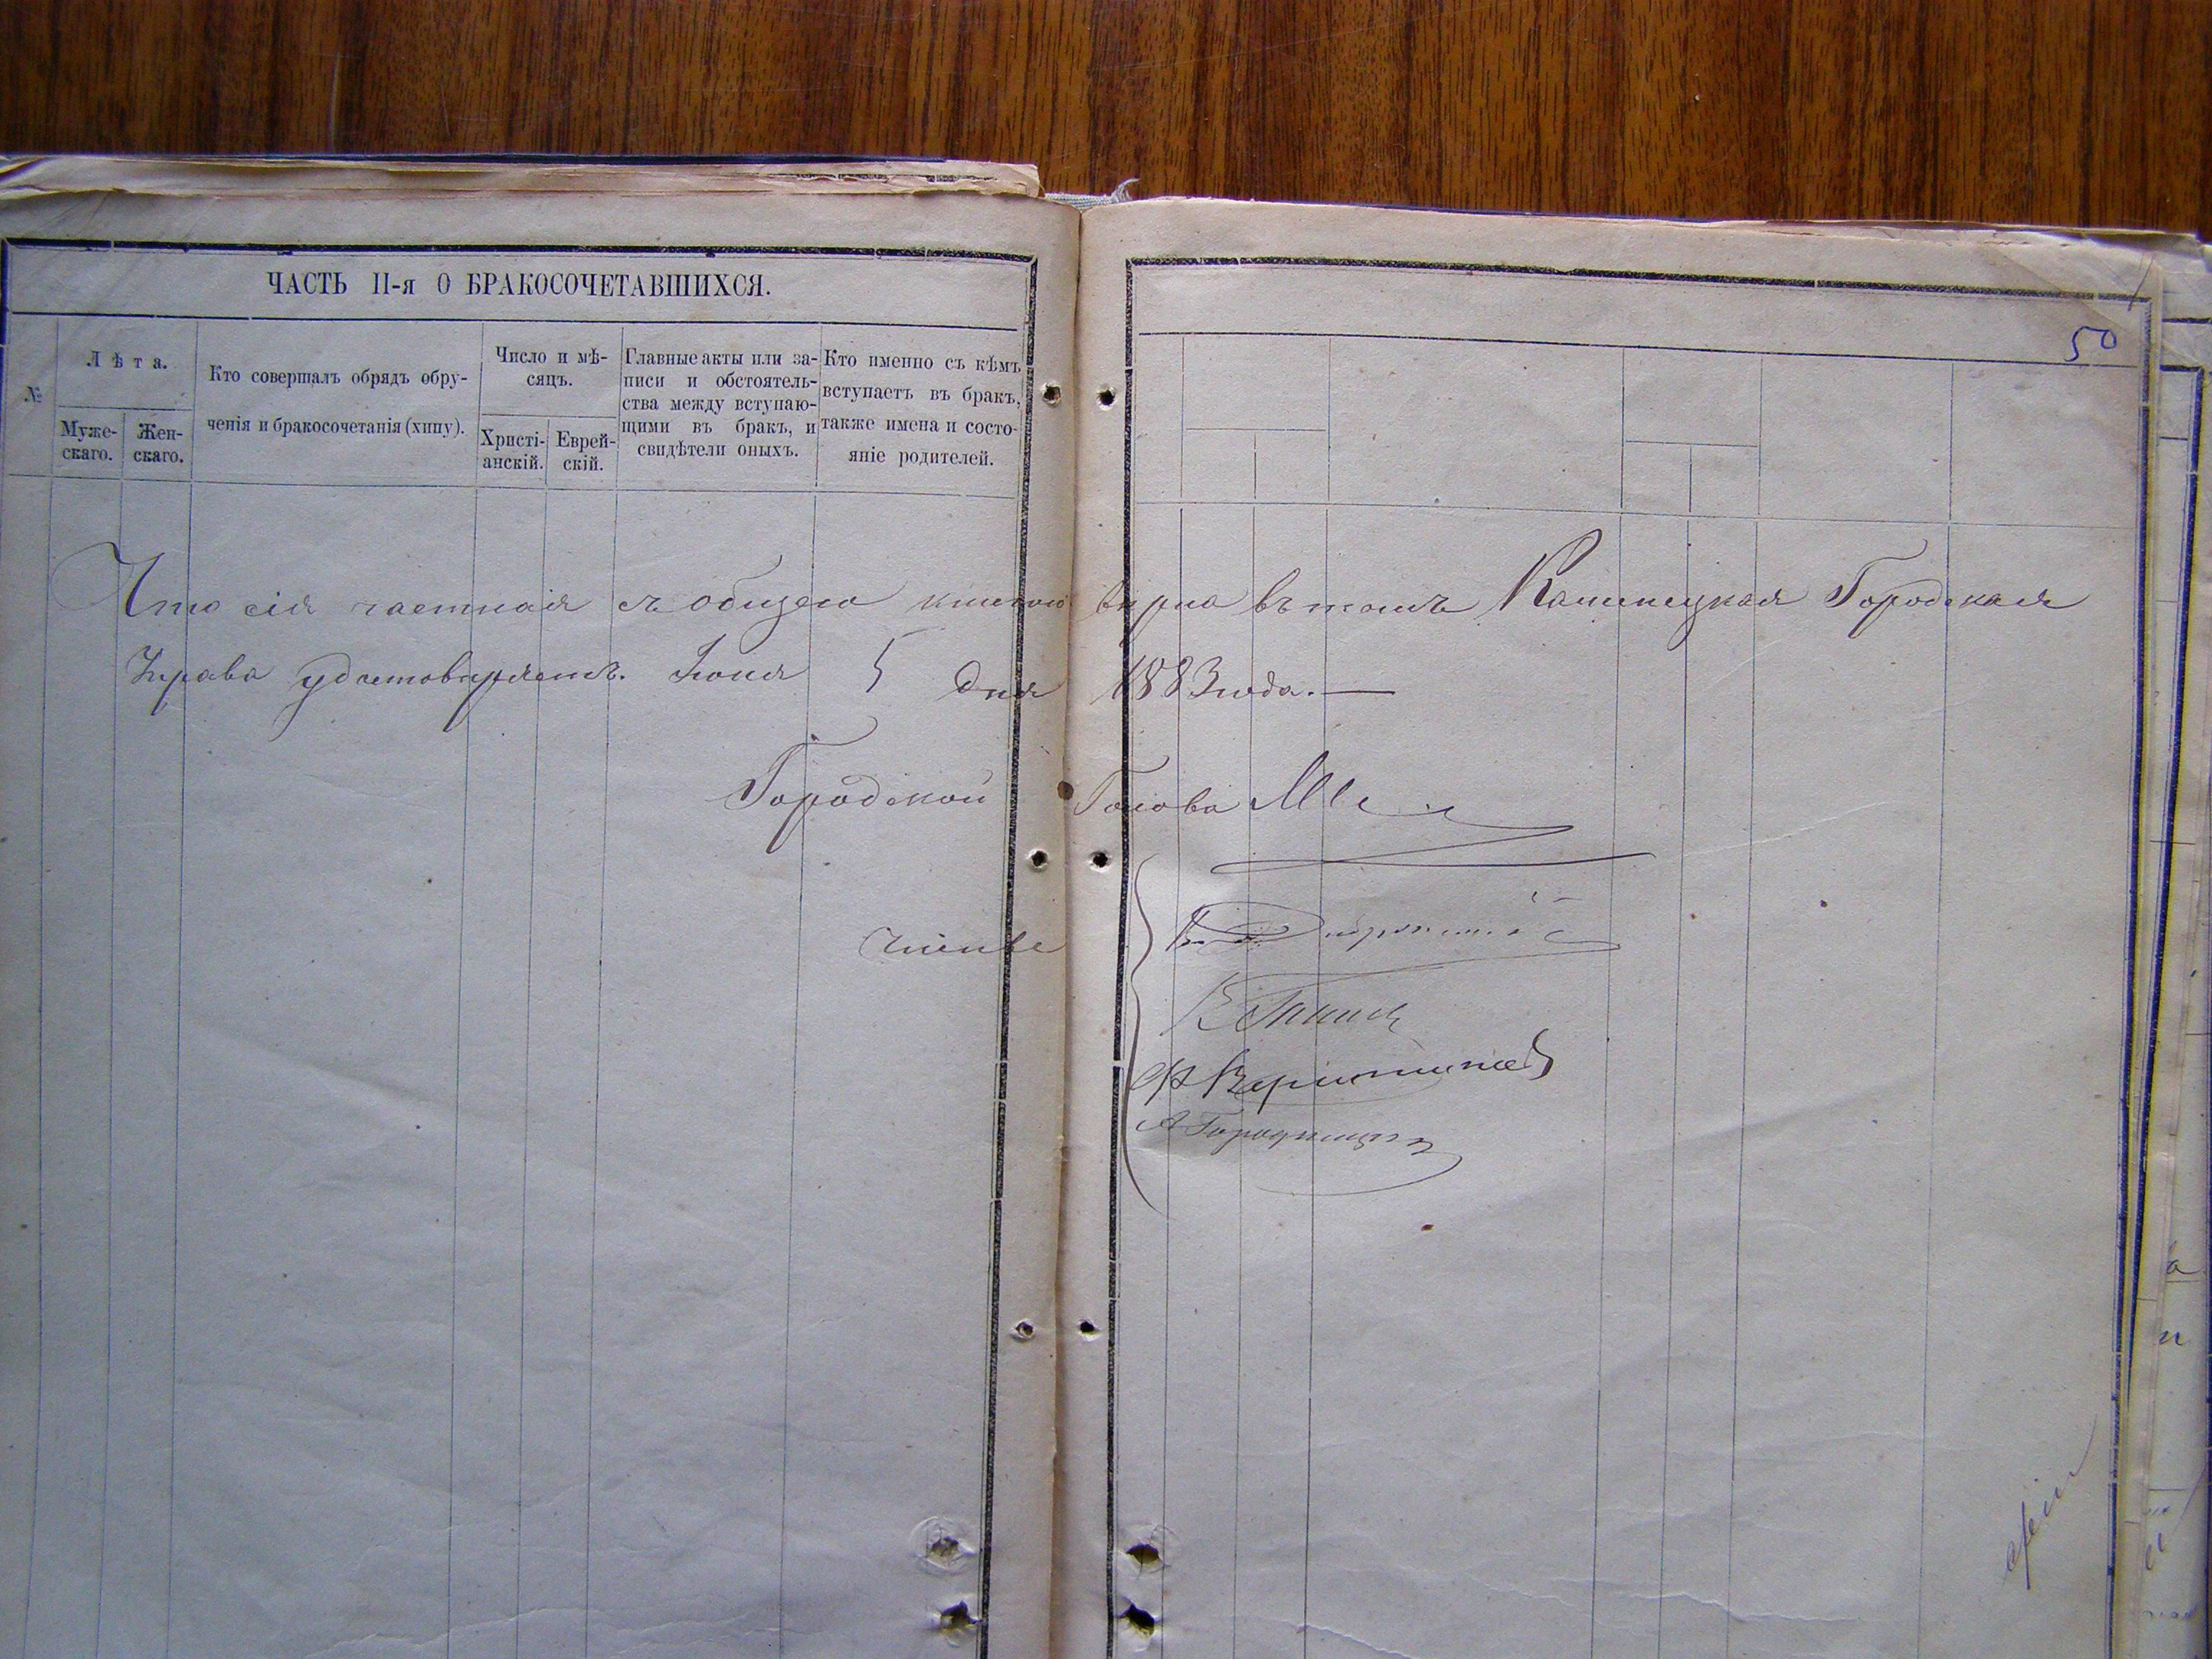 ЧАСТЬ II-я О БРАКОСОЧЕТАВШИХСЯ.
№
Лѣта.
Муже-
скаго.
Жен-
скаго.
Кто совершалъ обрядъ обру-
ченія и бракосочетанія (хипу).
Число и мѣ-
сяцъ.
Христі-
анскій.
Еврей-
скій.
Главные акты или за-
писи и обстоятель-
ства между вступаю-
щими въ бракъ, и
свидѣтели оныхъ.
Кто именно съ кѣмъ
вступаетъ въ бракъ,
также имена и состо-
яніе родителей.
50
Что сія частная съ общею книгою вѣрна въ томъ Каменецкая Городская
Управа удостовѣряетъ. Іюня 5 дня 1883 года. —
Городской Голова
Члены